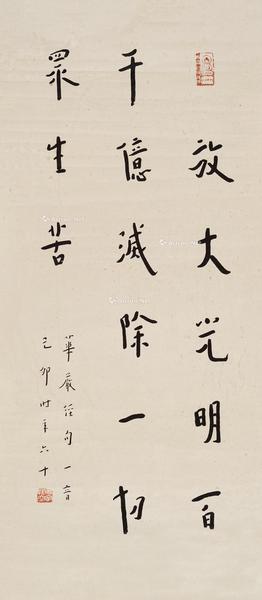 放大光明百
千億滅除一切
眾生苦
華嚴經句一音
己卯時年六十